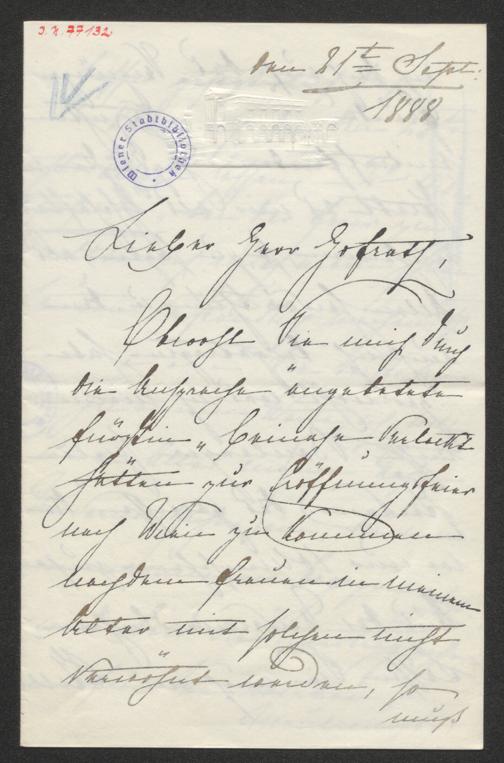 J. N. 77132
den 21t Sept:
1888
Wiener Stadtbibliothek
Lieber Herr Hofrath,
Obwohl Sie mich durch
die Ansprache "angebetete
Fürstin" beinahe verlockt
hätten zur Eröffnungsfeier
nach Wien zu kommen
nachdem Frauen in meinem
Alter mit solchen nicht
verwöhnt werden, so
muß